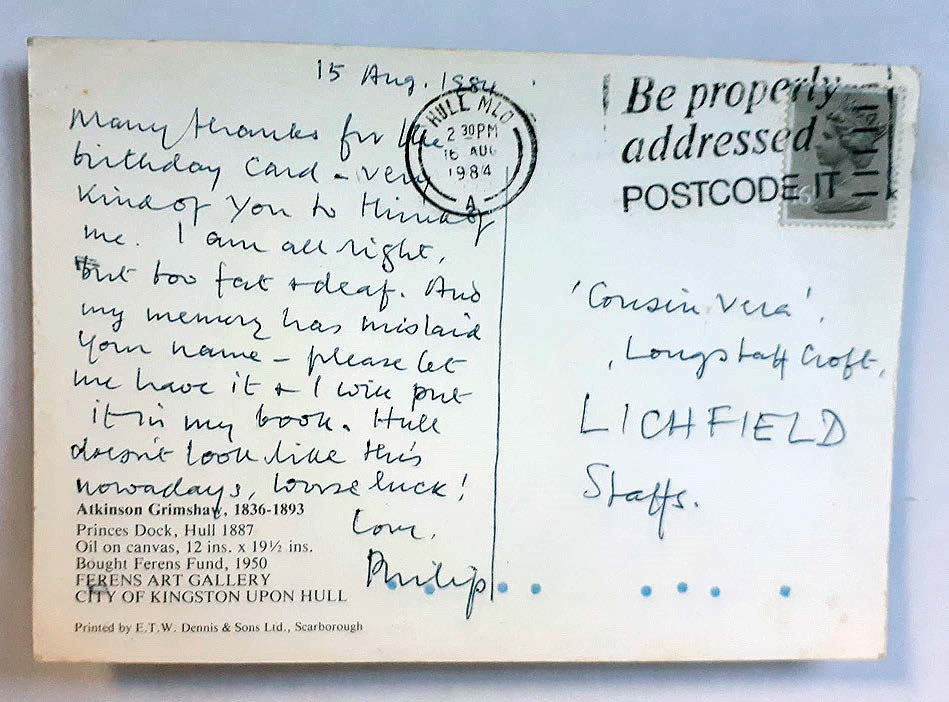 15 Aug. 1984
Many thanks for the
birthday card - very
kind of you to think of
me. I am all right,
but too fat & deaf. And
my memory has mislaid
your name - please let
me have it & I will put
it in my book. Hull
doesn't look like this
nowadays, worse luck!
Love,
Philip
Atkinson Grimshaw, 1836-1893
Princes Dock, Hull 1887
Oil on canvas, 12 ins. x 19½ ins.
Bought Ferens Fund, 1950
FERENS ART GALLERY
CITY OF KINGSTON UPON HULL
Printed by E.T.W. Dennis & Sons Ltd., Scarborough
HULL MLO
2 30PM
16 AUG
1984
A
Be properly
addressed
POSTCODE IT
'Cousin Vera',
Longstaff Croft,
LICHFIELD
Staffs.